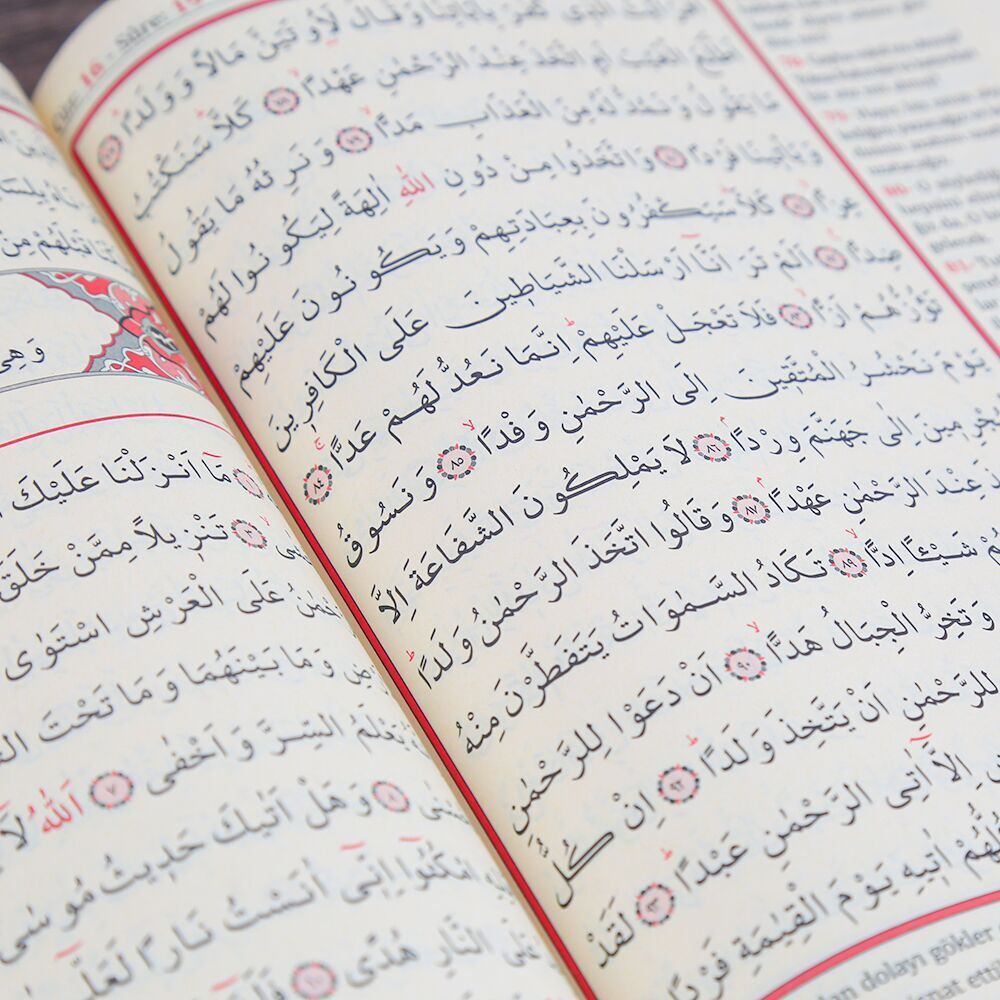 كَفَرَ بِاٰيَاتِنَا وَقَالَ لَاُوتَيَنَّ مَالاً وَوَلَدًا ﴿٧٧﴾
اَطَّلَعَ الْغَيْبَ اَمِ اتَّخَذَ عِنْدَ الرَّحْمٰنِ عَهْدًا ﴿٧٨﴾ كَلَّا سَنَكْتُبُ
مَا يَقُولُ وَنَمُدُّ لَهُ مِنَ الْعَذَابِ مَدًّا ﴿٧٩﴾ وَنَرِثُهُ مَا يَقُولُ
وَيَأْتِينَا فَرْدًا ﴿٨٠﴾ وَاتَّخَذُوا مِنْ دُونِ اللهِ اٰلِهَةً لِيَكُونُوا لَهُمْ
عِزًّا ﴿٨١﴾ كَلَّا سَيَكْفُرُونَ بِعِبَادَتِهِمْ وَيَكُونُونَ عَلَيْهِمْ
ضِدًّا ﴿٨٢﴾ اَلَمْ تَرَ اَنَّا اَرْسَلْنَا الشَّيَاطِينَ عَلَى الْكَافِرِينَ
تَؤُزُّهُمْ اَزًّا ﴿٨٣﴾ فَلَا تَعْجَلْ عَلَيْهِمْ اِنَّمَا نَعُدُّ لَهُمْ عَدًّا ﴿٨٤﴾
يَوْمَ نَحْشُرُ الْمُتَّقِينَ اِلَى الرَّحْمٰنِ وَفْدًا ﴿٨٥﴾ وَنَسُوقُ
اِلٰى جَهَنَّمَ وِرْدًا ﴿٨٦﴾ لَا يَمْلِكُونَ الشَّفَاعَةَ اِلَّا
عِنْدَ الرَّحْمٰنِ عَهْدًا ﴿٨٧﴾ وَقَالُوا اتَّخَذَ الرَّحْمٰنُ وَلَدًا
شَيْئًا اِدًّا ﴿٨٩﴾ تَكَادُ السَّمٰوَاتُ يَتَفَطَّرْنَ مِنْهُ
وَتَخِرُّ الْجِبَالُ هَدًّا ﴿٩٠﴾ اَنْ دَعَوْا لِلرَّحْمٰنِ
لِلرَّحْمٰنِ اَنْ يَتَّخِذَ وَلَدًا ﴿٩٢﴾ اِنْ كُلُّ
اِلَّا اٰتِى الرَّحْمٰنِ عَبْدًا ﴿٩٣﴾ لَقَدْ
اٰتِيهِ يَوْمَ الْقِيٰمَةِ فَرْدًا
dolayı gökler
وَهِيَ
مَا اَنْزَلْنَا عَلَيْكَ
تَنْزِيلاً مِمَّنْ خَلَقَ
عَلَى الْعَرْشِ اسْتَوٰى
وَمَا بَيْنَهُمَا وَمَا تَحْتَ
يَعْلَمُ السِّرَّ وَاَخْفٰى ﴿٧﴾ اَللهُ لَا
﴿٨﴾ وَهَلْ اَتٰيكَ حَدِيثُ مُوسٰى
امْكُثُوا اِنِّى اٰنَسْتُ نَارًا لَعَلِّى
عَلَى النَّارِ هُدًى ﴿١٠﴾ فَلَمَّا